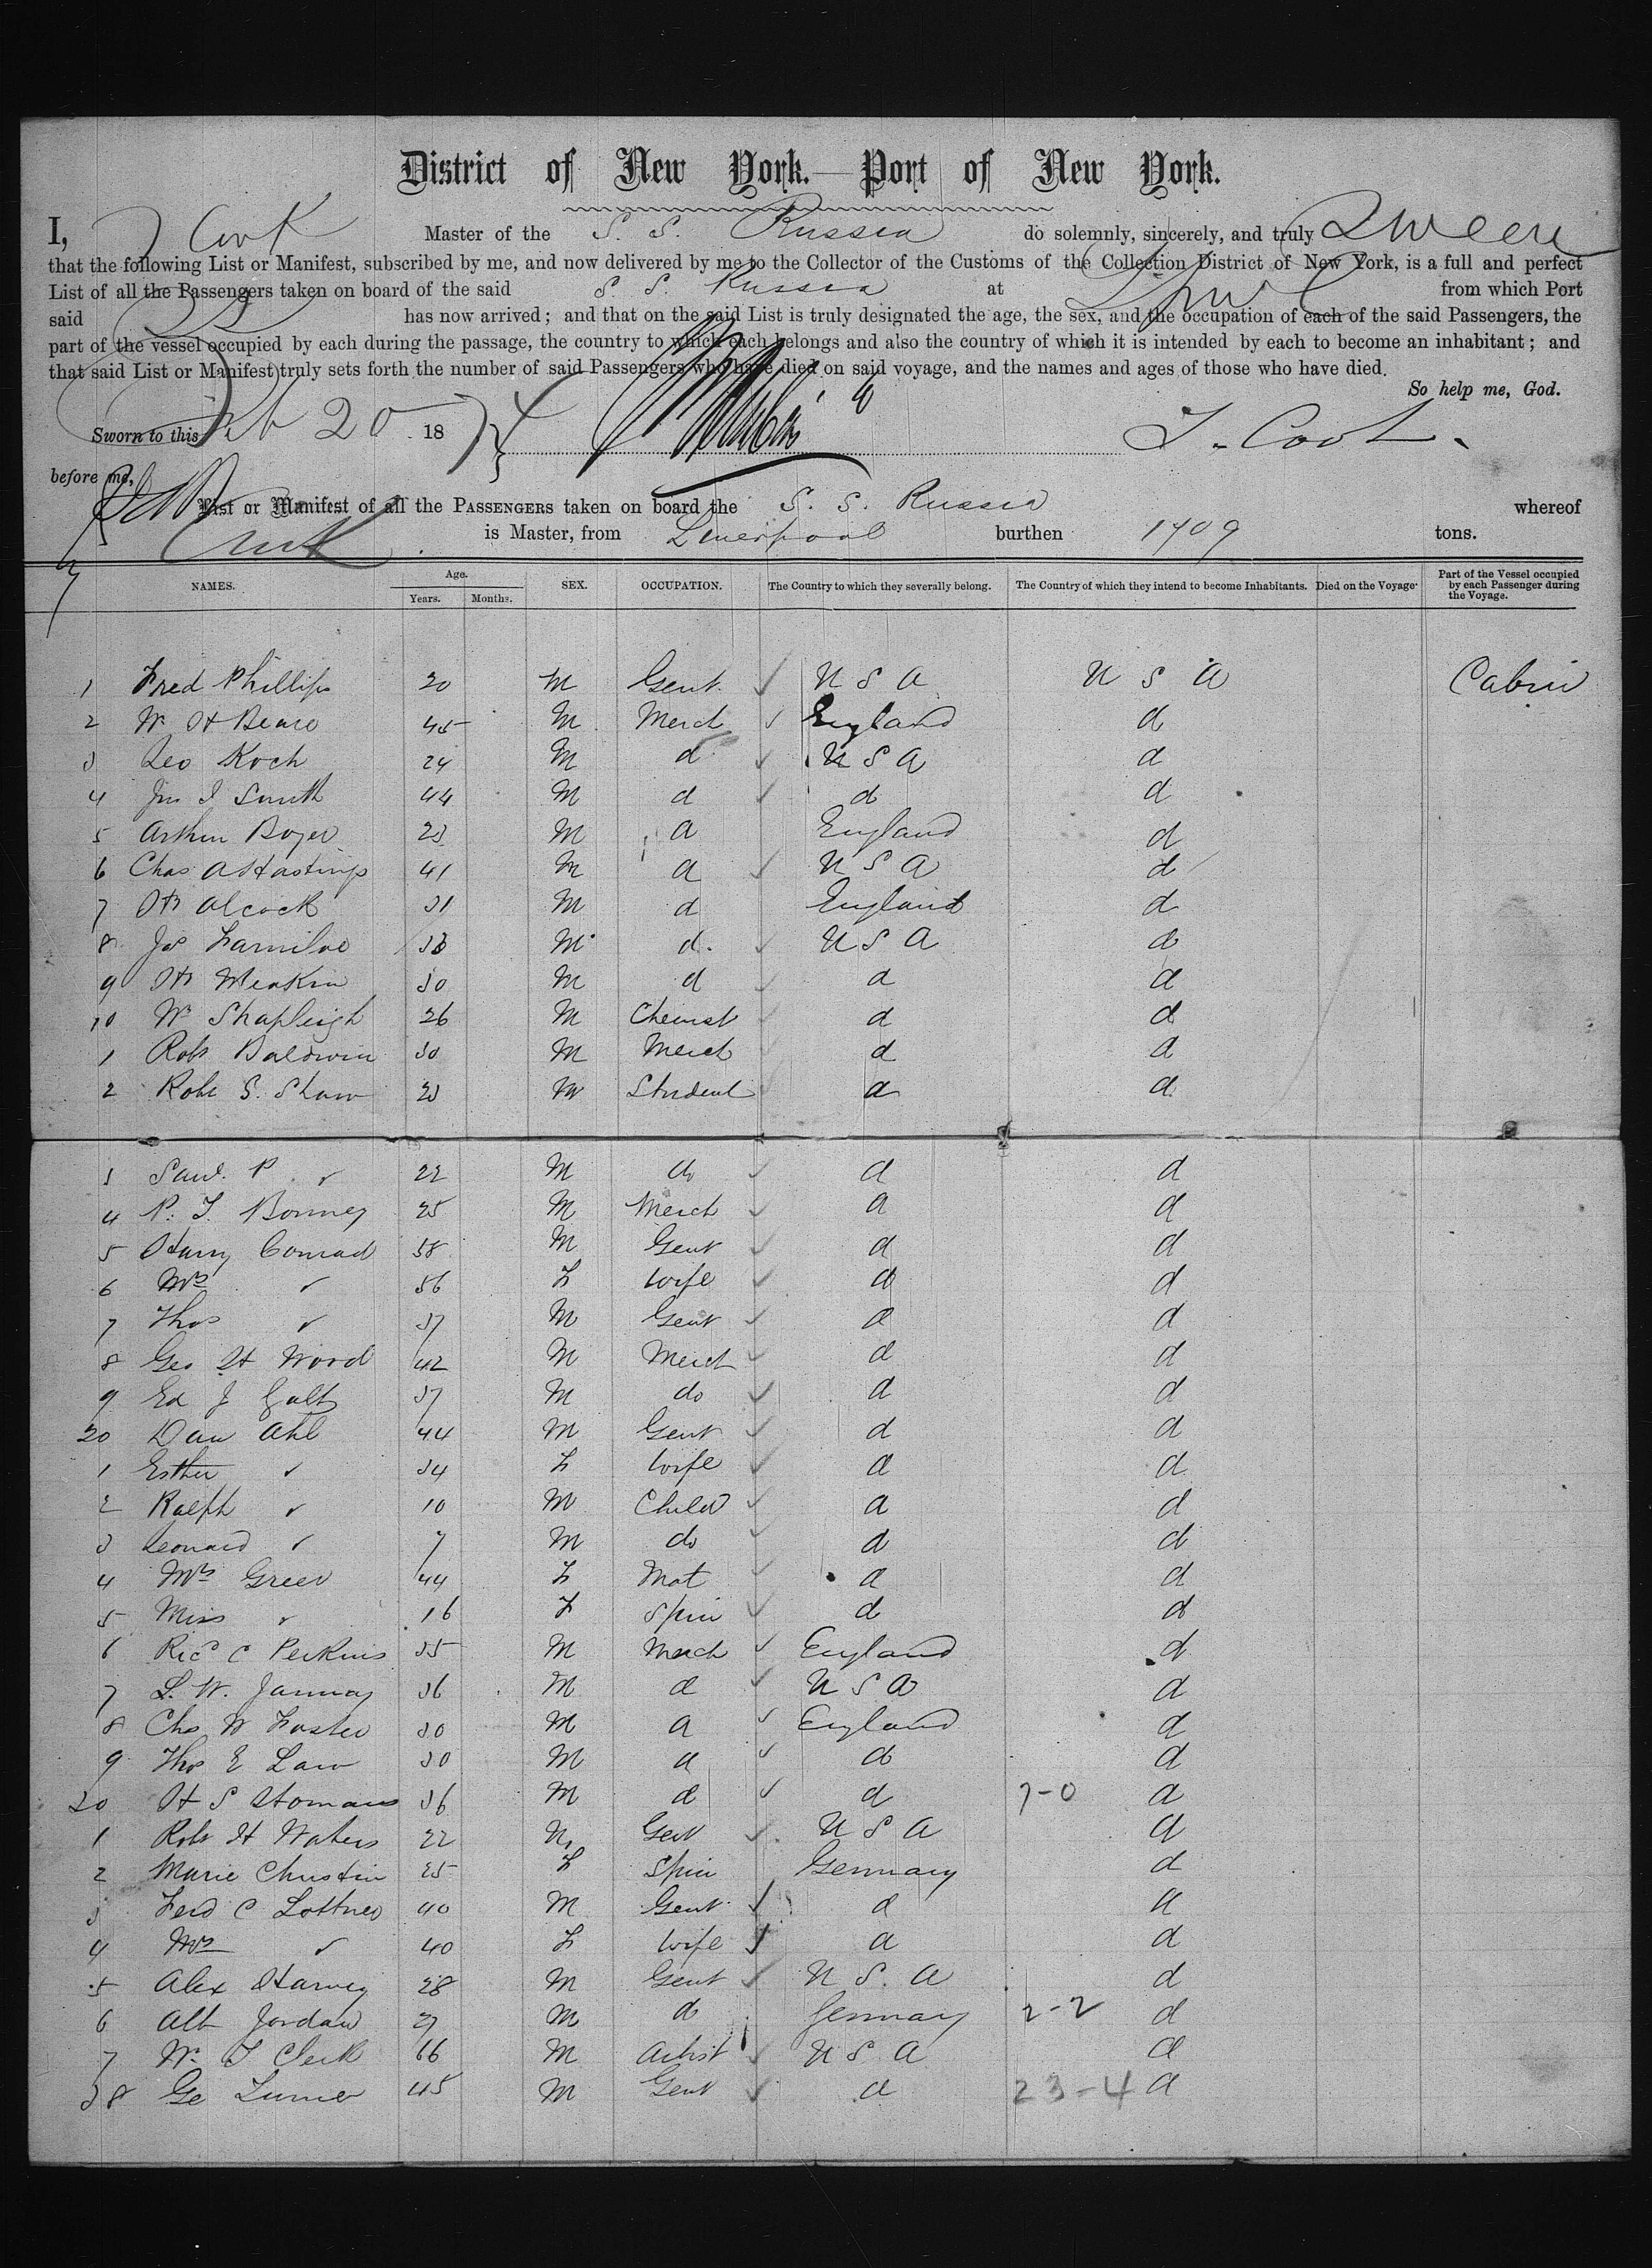 District of New York.—Port of New York.
I, J Cook Master of the S. S. Russia do solemnly, sincerely, and truly swear
that the following List or Manifest, subscribed by me, and now delivered by me to the Collector of the Customs of the Collection District of New York, is a full and perfect
List of all the Passengers taken on board of the said S. S. Russia at Lpool from which Port
said has now arrived; and that on the said List is truly designated the age, the sex, and the occupation of each of the said Passengers, the
part of the vessel occupied by each during the passage, the country to which each belongs and also the country of which it is intended by each to become an inhabitant; and
that said List or Manifest truly sets forth the number of said Passengers who have died on said voyage, and the names and ages of those who have died.
So help me, God.
Sworn to this Feb 20 1874 T. Cook
before me,
List or Manifest of all the PASSENGERS taken on board the S. S. Russia whereof
Cook is Master, from Liverpool burthen 1709 tons.
NAMES. Age. Years. Months. SEX. OCCUPATION. The Country to which they severally belong. The Country of which they intend to become Inhabitants. Died on the Voyage. Part of the Vessel occupied by each Passenger during the Voyage.
1 Fred Phillips 20 M Gent. ✓ U S A U S A Cabin
2 W H 45 M Merch ✓ England d
3 Leo Koch 24 M d ✓ U S A d
4 Jno I Smith 44 M d ✓ d d
5 Arthur Boyer 23 M d England d
6 Chas A Hastings 41 M d ✓ U S A d
7 Hy Alcock 31 M d England d
8 Jas 33 M d. ✓ U S A d
9 Hy Meakin 30 M d ✓ d d
10 Wm Shapleigh 26 M Chemist ✓ d d
1 Robt Baldwin 30 M Merch ✓ d d
2 Robt S. Shaw 23 M Student ✓ d d
3 Saml. P ✓ 22 M do ✓ d d
4 P. T. Bonney 25 M Merch ✓ d d
5 Harry Conrad 58 M Gent ✓ d d
6 Mrs ✓ 56 F Wife ✓ d d
7 Thos ✓ 37 M Gent ✓ d d
8 Geo H Wood 42 M Merch ✓ d d
9 Ed J Galt 37 M do ✓ d d
20 Dan Ahl 44 M Gent ✓ d d
1 Esther ✓ 34 F Wife ✓ d d
2 Ralph ✓ 10 M Child ✓ d d
3 Leonard ✓ 7 M do ✓ d d
4 Mrs Greer 44 F Mat ✓ d d
5 Miss ✓ 16 F Spin ✓ d d
6 Ricd C Perkins 35 M Merch ✓ England d
7 L. W. Janney 36 M d ✓ U S A d
8 Chs W Foster 30 M d ✓ England d
9 Thos E Law 30 M d ✓ d d
20 H S Homans 36 M d ✓ d 7-0 d
1 Robt H Waters 22 M Gent ✓ U S A d
2 Marie Christin 25 F Spin Germany d
3 Ferd C Lottner 40 M Gent ✓ d d
4 Mrs ✓ 40 F Wife ✓ d d
5 Alex Harvey 28 M Gent ✓ U S. A d
6 Alb Jordan 27 M do Germany 2-2 d
7 W. T Clerk 66 M Artist ✓ U S A d
38 Ge Turner 45 M Gent ✓ d 23-4 d